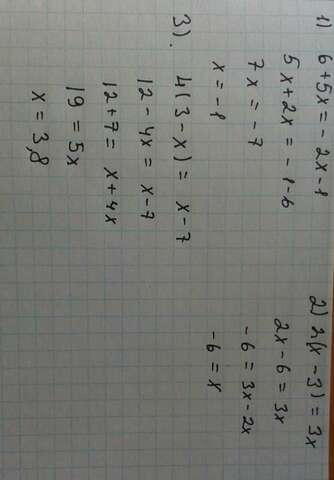 1) 6+5x = - 2x - 1
5x+2x = - 1 - 6
7x = - 7
x = - 1
2) 2(x - 3) = 3x
2x - 6 = 3x
- 6 = 3x - 2x
- 6 = x
3). 4(3 - x) = x - 7
12 - 4x = x - 7
12 + 7 = x + 4x
19 = 5x
x = 3,8